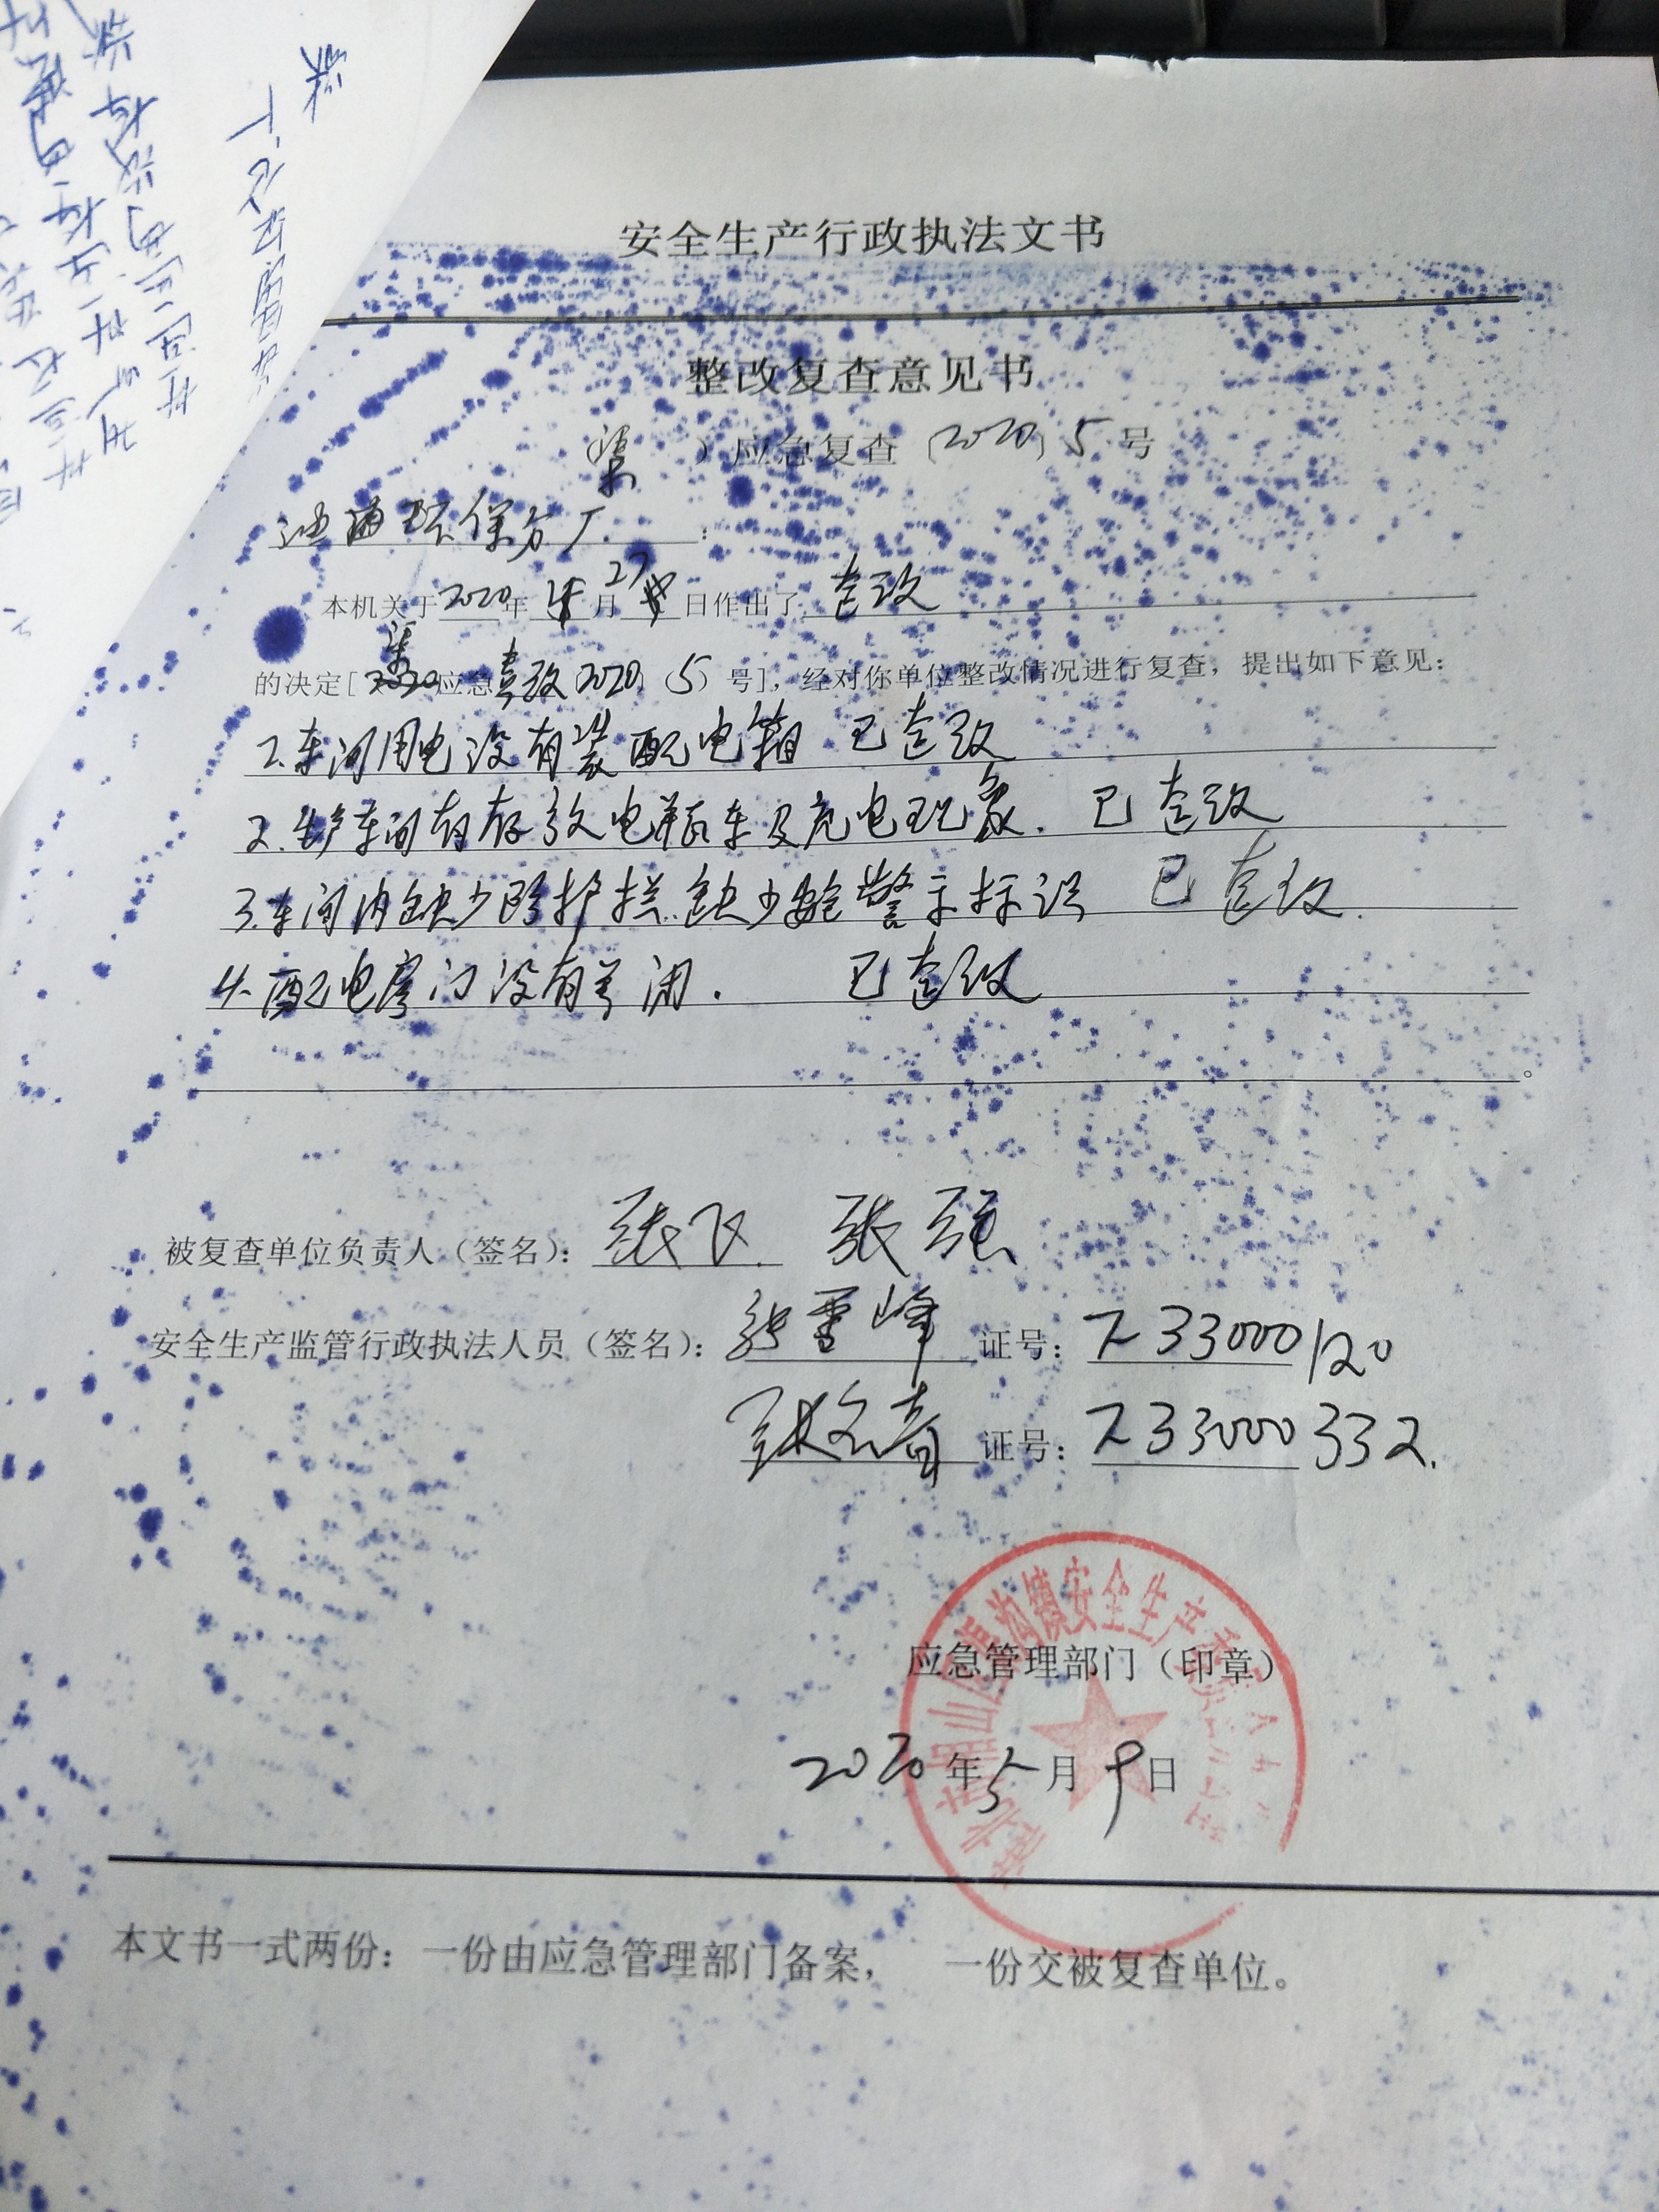 安全生产行政执法文书
整改复查意见书
（渠）应急复查〔2020〕5号
迪通环保分厂：
本机关于2020年4月27日作出了 整改
的决定[渠应急责改2020（5）号]，经对你单位整改情况进行复查，提出如下意见：
1.车间用电没有装配电箱 已整改
2.生产车间有存放电瓶车及充电现象. 已整改
3.车间内缺少防护栏.缺少安全警示标识 已整改.
4.配电房门没有关闭. 已整改
。
被复查单位负责人（签名）：张飞 张强
安全生产监管行政执法人员（签名）：张雪峰 证号：Z33000120
证号：Z33000332.
应急管理部门（印章）
2020年5月9日
本文书一式两份：一份由应急管理部门备案， 一份交被复查单位。